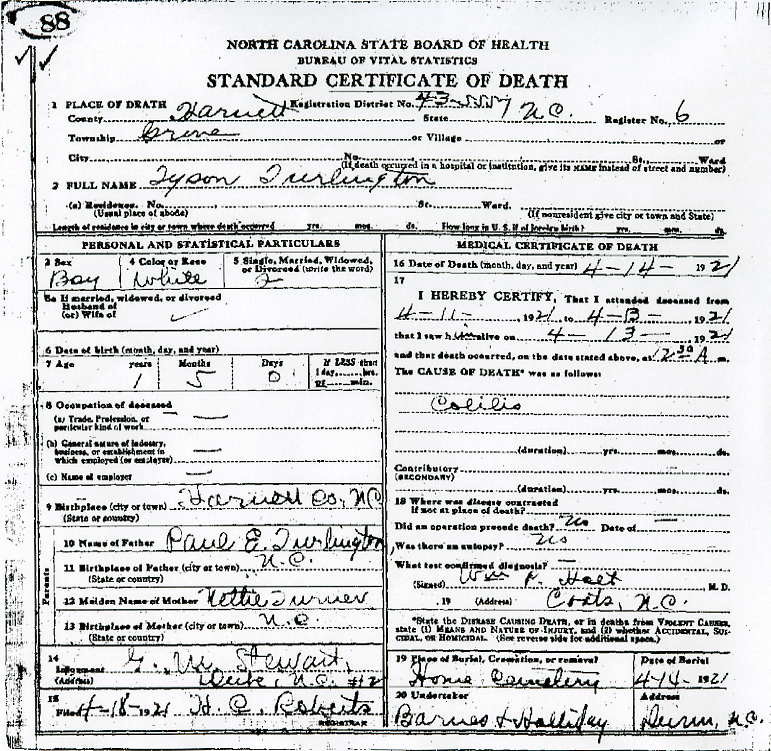 88
NORTH CAROLINA STATE BOARD OF HEALTH
BUREAU OF VITAL STATISTICS
STANDARD CERTIFICATE OF DEATH
1 PLACE OF DEATH Registration District No. 43-
County Harnett State N.C. Register No. 6
Township Grove or Village or
City No. St., Ward
(If death occurred in a hospital or institution, give its NAME instead of street and number)
2 FULL NAME Tyson Turlington
(a) Residence. No. St. Ward.
(Usual place of abode) (If nonresident give city or town and State)
Length of residence in city or town where death occurred yrs. mos. ds. How long in U. S. if of foreign birth? yrs. mos. ds.
PERSONAL AND STATISTICAL PARTICULARS
3 Sex 4 Color or Race 5 Single, Married, Widowed, or Divorced (write the word)
Boy White
5a If married, widowed, or divorced
Husband of
(or) Wife of
6 Date of birth (month, day, and year)
7 Age years Months Days If LESS than
1 day, hrs.
or min.
1 5 0
8 Occupation of deceased
(a) Trade, Profession, or
particular kind of work
(b) General nature of industry,
business, or establishment in
which employed (or employer)
(c) Name of employer
9 Birthplace (city or town) Harnett Co, N.C.
(State or country)
Parents
10 Name of Father Paul E. Turlington
11 Birthplace of Father (city or town) N.C.
(State or country)
12 Maiden Name of Mother Nettie Turner
13 Birthplace of Mother (city or town) N.C.
(State or country)
14
Informant G. M. Stewart,
(Address) N.C. #2
15
Filed 4-18-1921 H. C. Roberts
REGISTRAR
MEDICAL CERTIFICATE OF DEATH
16 Date of Death (month, day, and year) 4-14- 1921
17
I HEREBY CERTIFY, That I attended deceased from
4-11-, 1921, to 4-13-, 1921
that I saw him alive on 4-13-, 1921
and that death occurred, on the date stated above, at 12 30 A m.
The CAUSE OF DEATH* was as follows:
Colitis
(duration) yrs. mos. ds.
Contributory
(SECONDARY)
(duration) yrs. mos. ds.
18 Where was disease contracted
if not at place of death?
Did an operation precede death? No Date of
Was there an autopsy? No
What test confirmed diagnosis?
(Signed) Wm P. Holt M. D.
, 19 (Address) Coats, N.C.
*State the DISEASE CAUSING DEATH, or in deaths from VIOLENT CAUSES,
state (1) MEANS AND NATURE OF INJURY, and (2) whether ACCIDENTAL, SUI-
CIDAL, OR HOMICIDAL. (See reverse side for additional space.)
19 Place of Burial, Cremation, or removal? Date of Burial
Home Cemetery 4-14-1921
20 Undertaker Address
Barnes & Holliday Dunn, N.C.